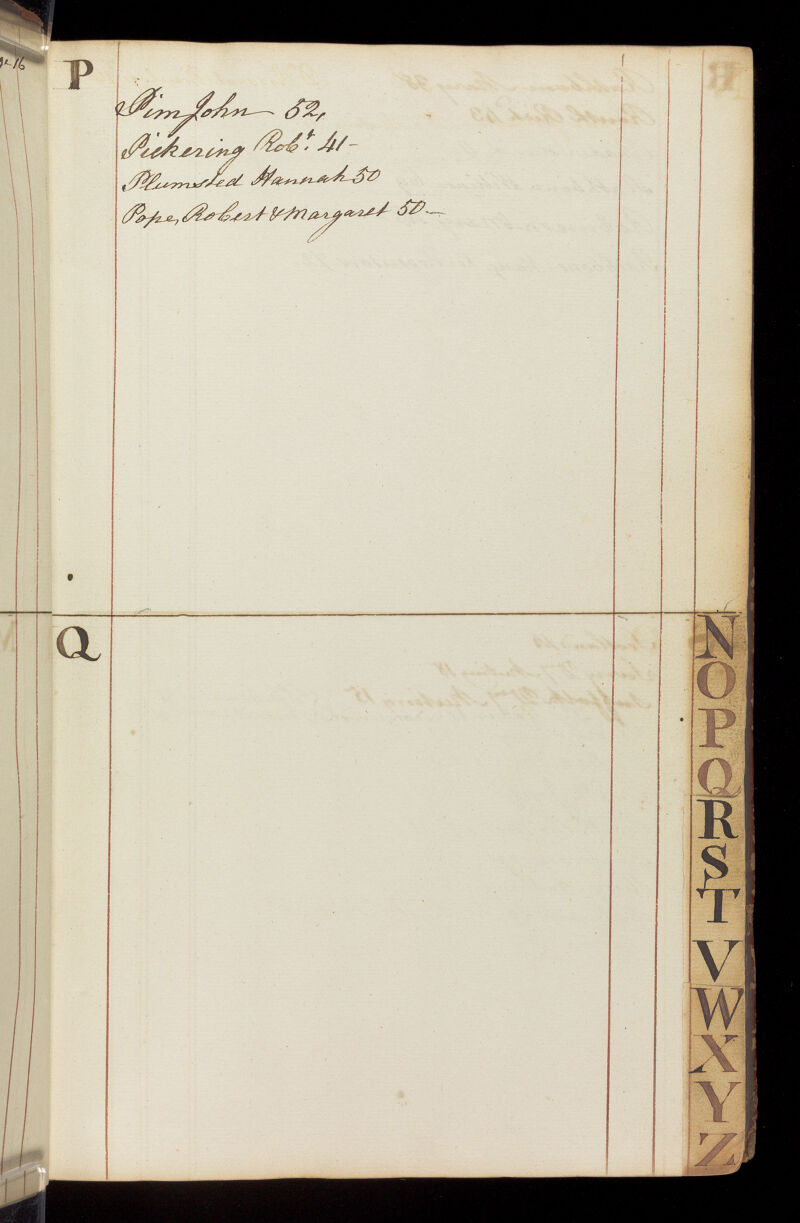 P
Pim John 52,
Pickering Robt. 41-
Plumsted Hannah 50
Pope, Robert & Margaret 50.-
Q
N
O
P
Q
R
S
T
V
W
X
Y
Z